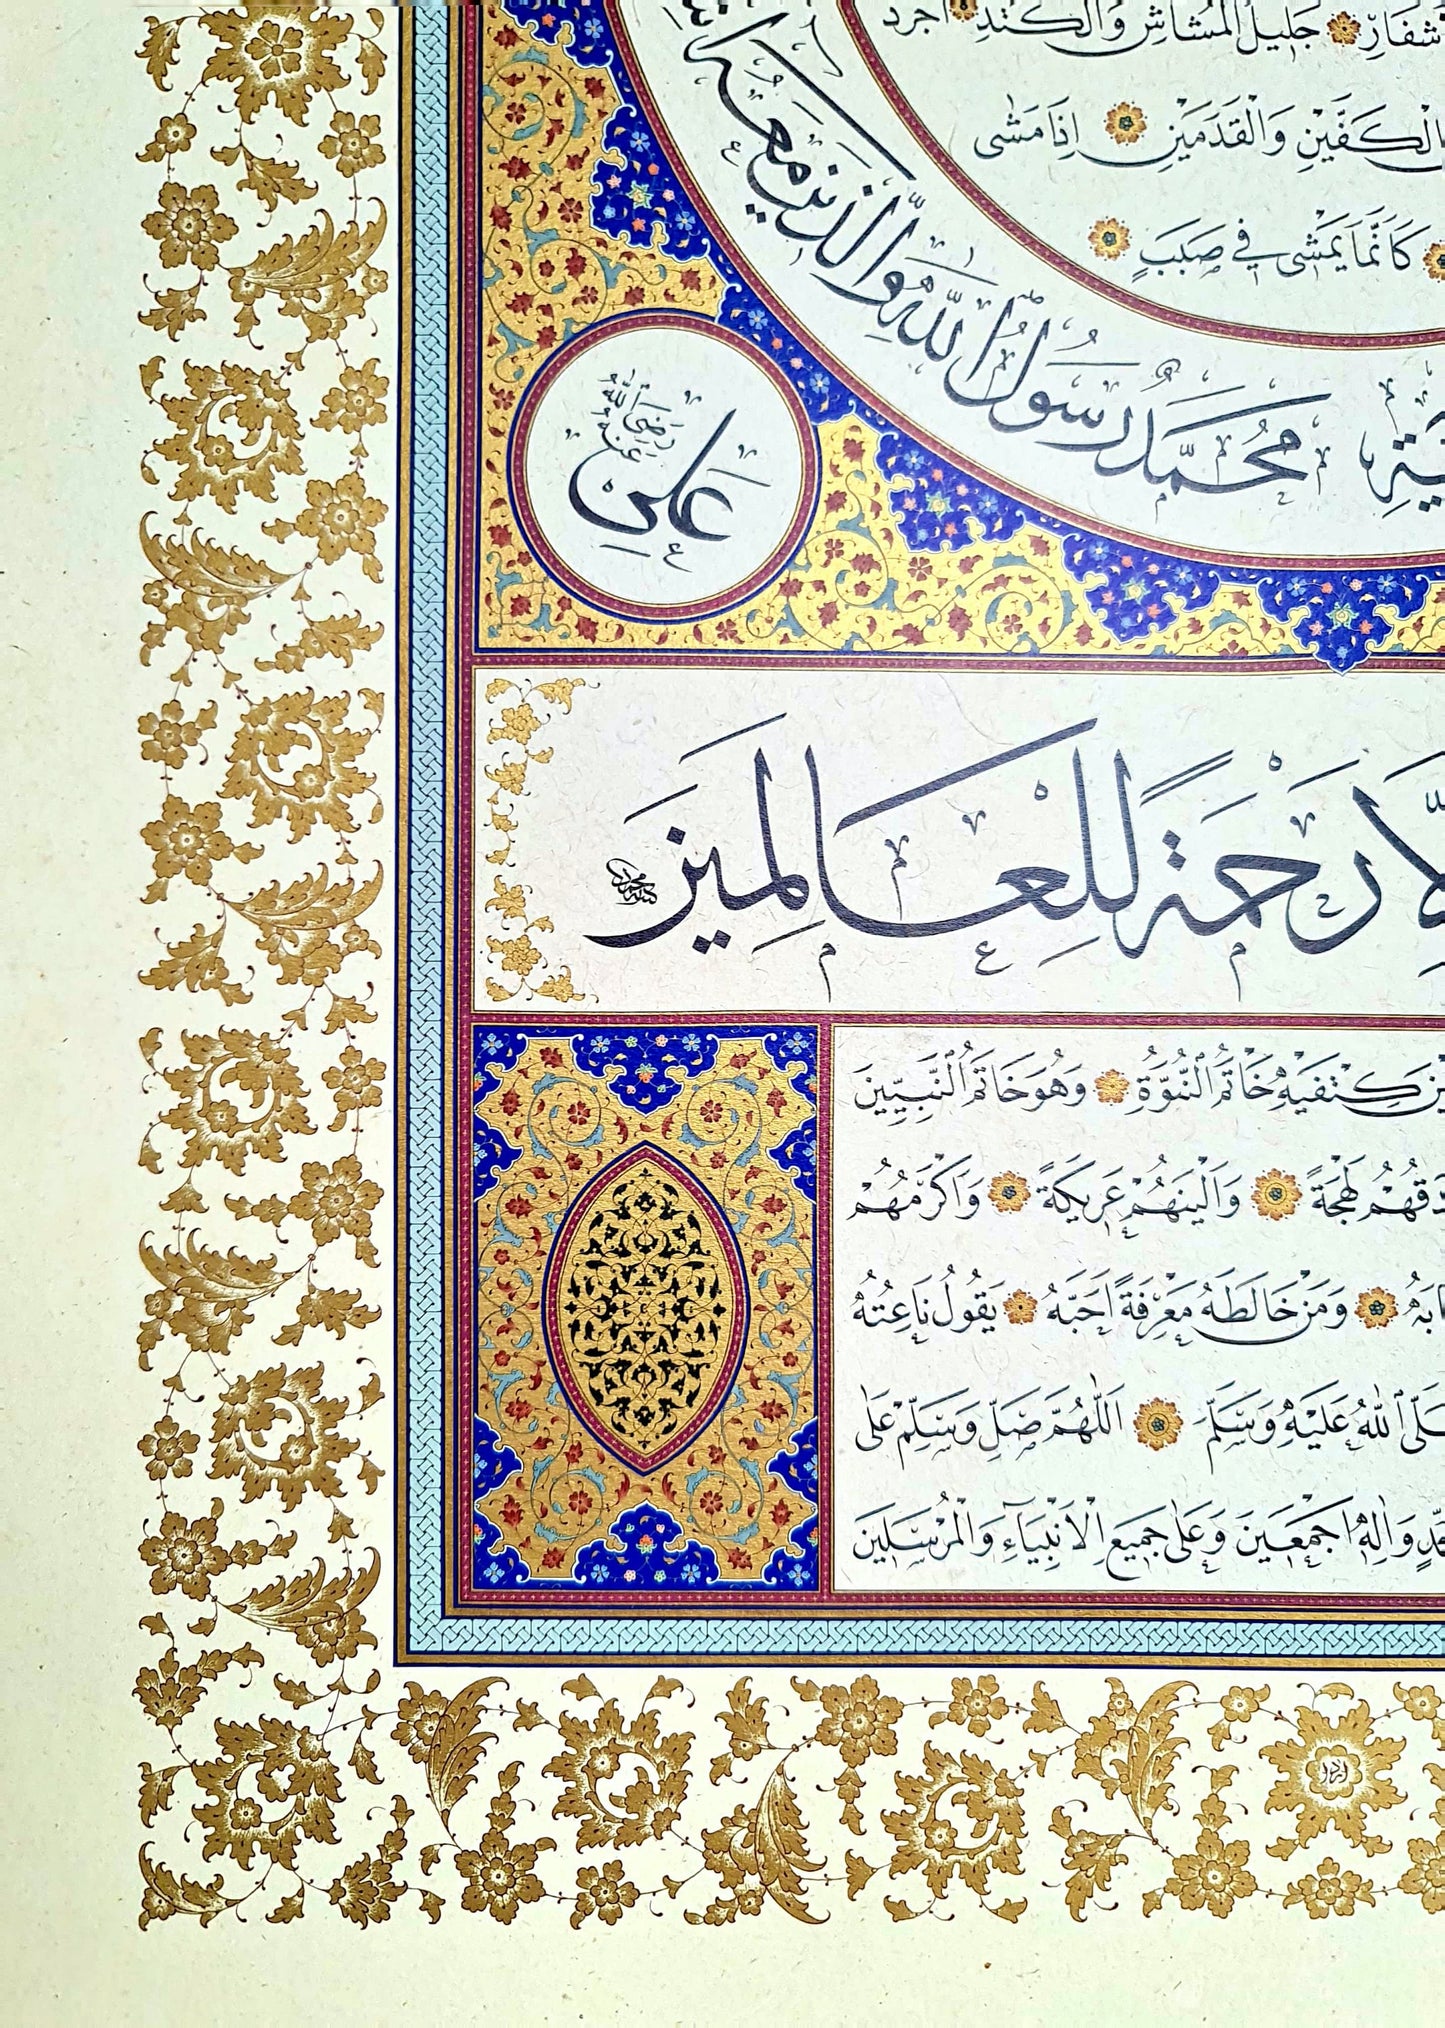 اَشْفَارِ جَلِيلُ الْمُشَاشِ وَالْكَتَدِ اَجْرَدُ
الْكَفَّيْنِ وَالْقَدَمَيْنِ اِذَا مَشٰى
كَاَنَّمَا يَمْشٖى فٖى صَبَبٍ
مُحَمَّدٌ رَسُولُ اللّٰهِ وَالَّذٖينَ مَعَهُ
عَلِىٌّ رَضِىَ اللّٰهُ عَنْهُ
اِلَّا رَحْمَةً لِلْعَالَمٖينَ
بَيْنَ كِتْفَيْهِ خَاتَمُ النُّبُوَّةِ وَهُوَ خَاتَمُ النَّبِيّٖينَ
اَصْدَقُهُمْ لَهْجَةً وَاَلْيَنُهُمْ عَرٖيكَةً وَاَكْرَمُهُمْ
هَابَهُ وَمَنْ خَالَطَهُ مَعْرِفَةً اَحَبَّهُ يَقُولُ نَاعِتُهُ
صَلَّى اللّٰهُ عَلَيْهِ وَسَلَّمَ اَللّٰهُمَّ صَلِّ وَسَلِّمْ عَلٰى
مُحَمَّدٍ وَاٰلِهٖ اَجْمَعٖينَ وَعَلٰى جَمٖيعِ الْاَنْبِيَاءِ وَالْمُرْسَلٖينَ